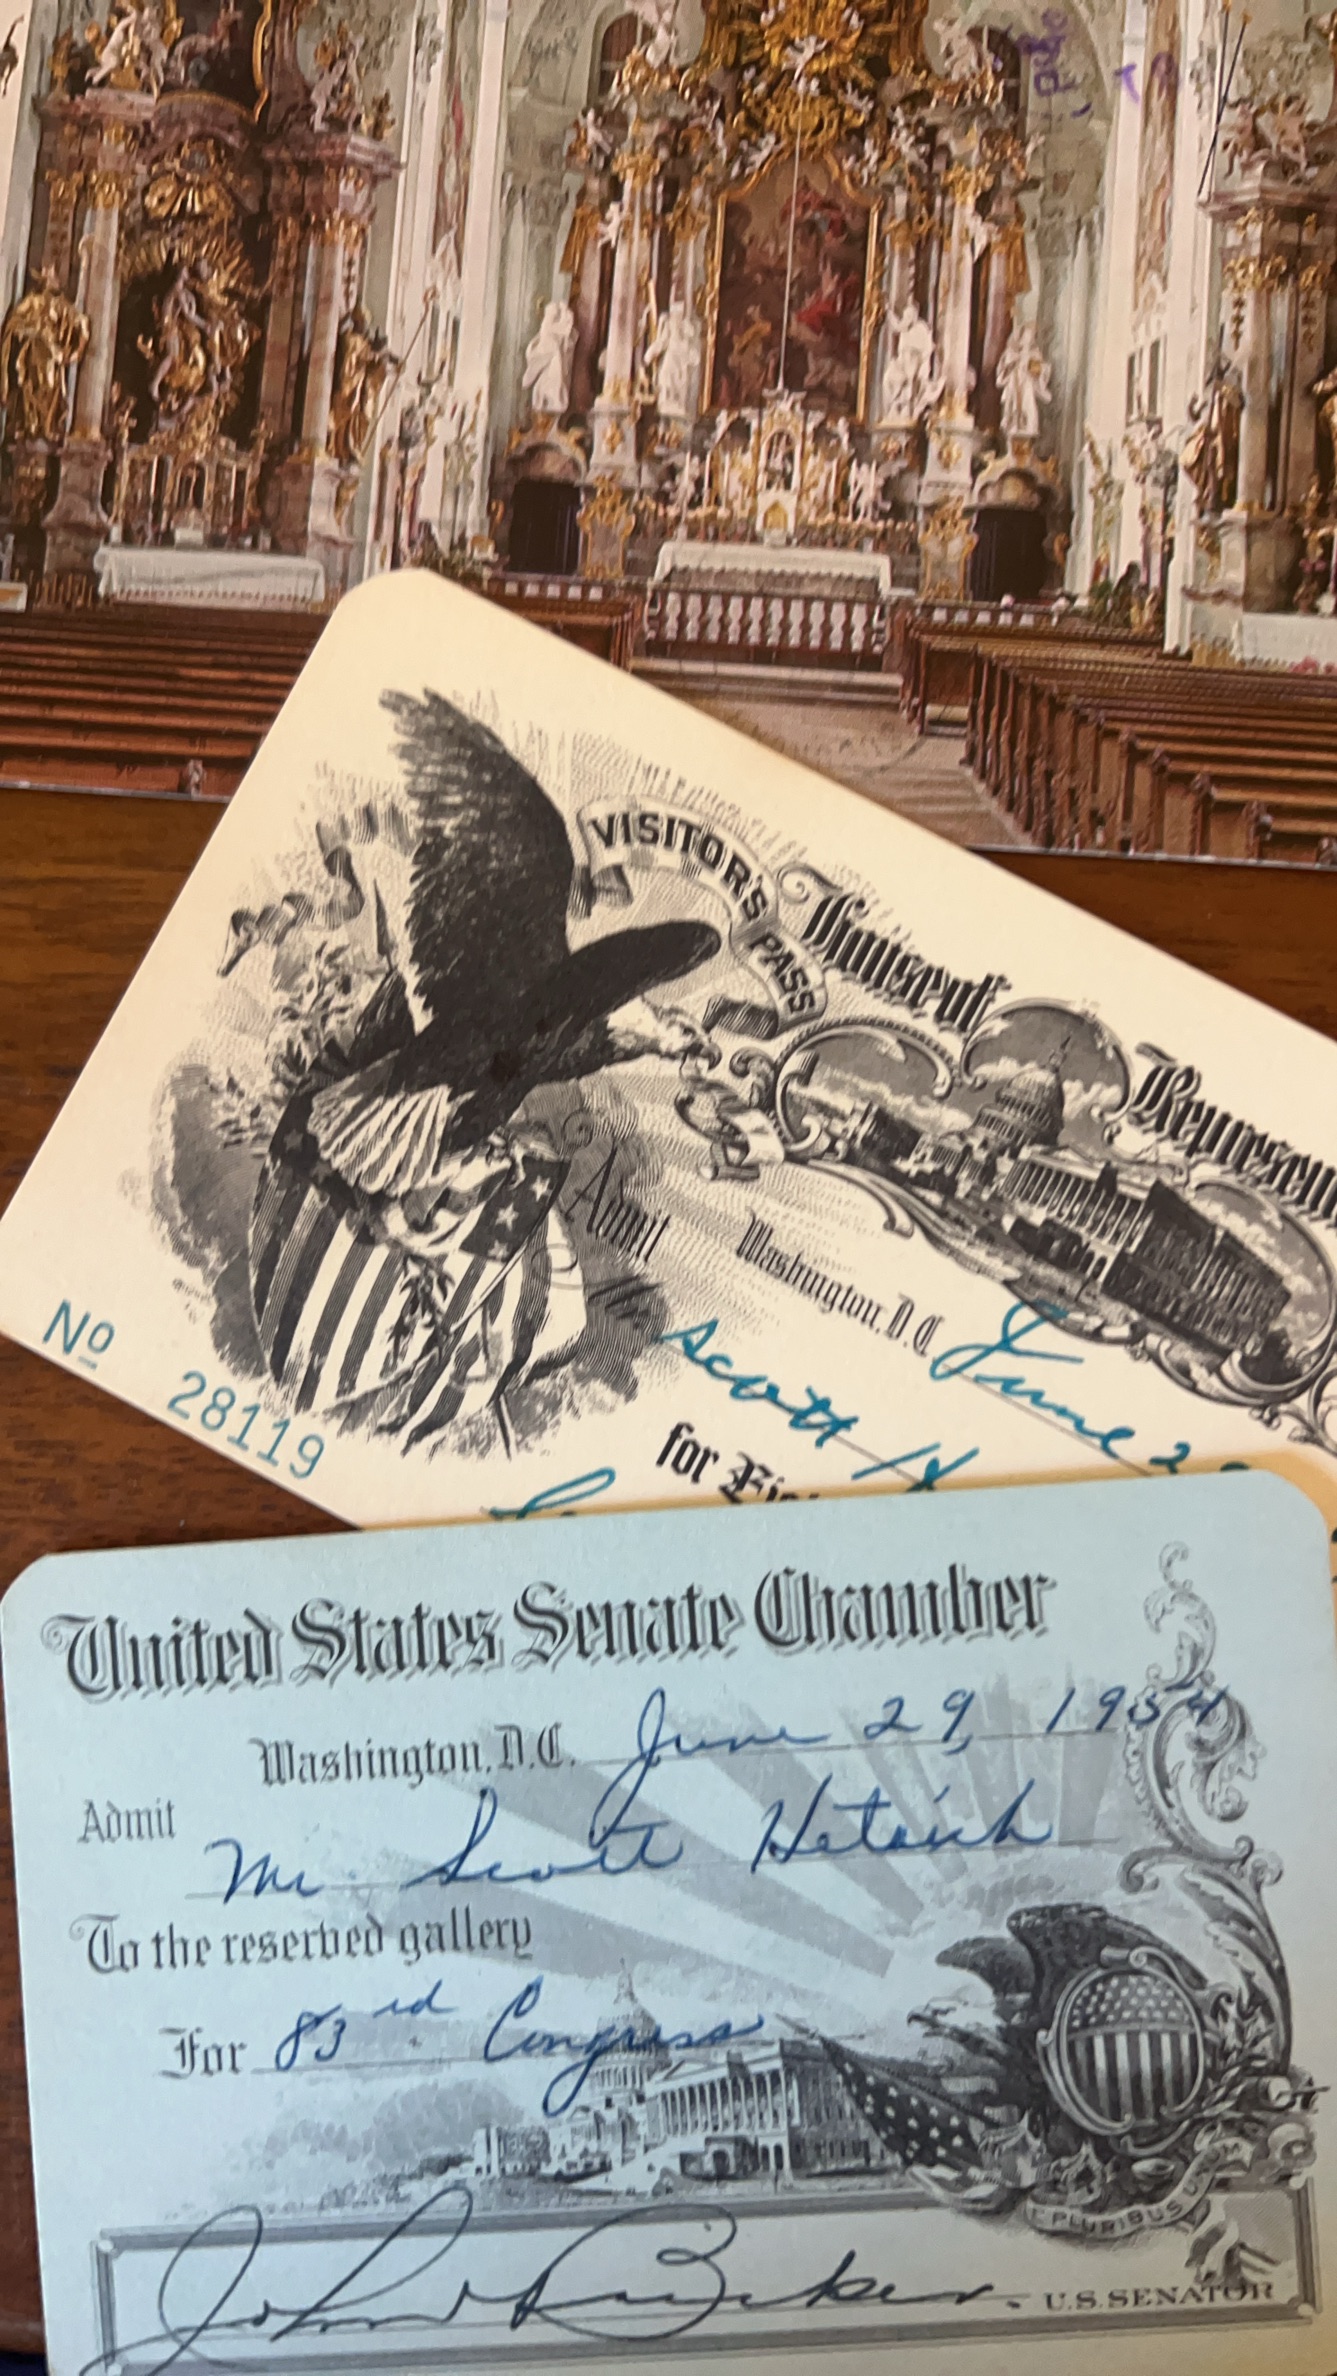 VISITOR'S PASS
House of
Represen
Admit
Washington, D.C. June 2
Mr. Scott H
for
No 28119
United States Senate Chamber
Washington, D.C. June 29, 1954
Admit
Mr Scott
To the reserved gallery
For 83rd Congress
E PLURIBUS UNUM
John
U.S. SENATOR